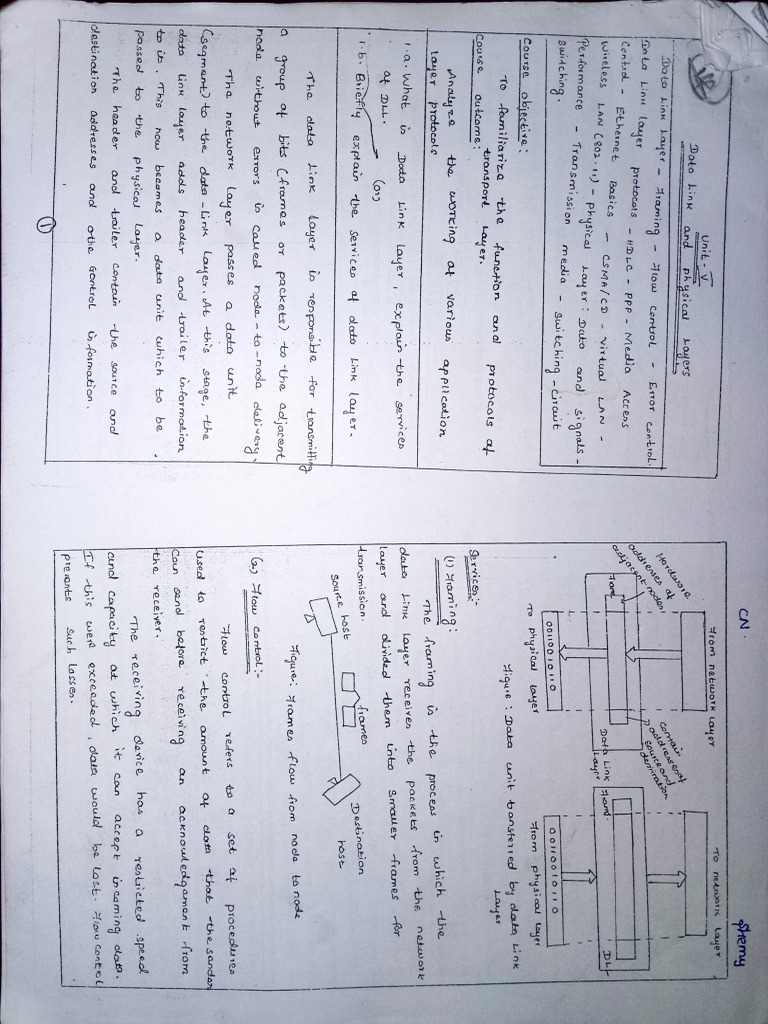 CN
Stemy
Unit - V
Data Link and Physical Layers
Data Link Layer - Framing - Flow control - Error control.
Data Link layer protocols - HDLC - PPP - Media Access
Control - Ethernet Basics - CSMA/CD - Virtual LAN -
Wireless LAN (802.11) - Physical Layer : Data and signals -
Performance - Transmission media - Switching - Circuit
switching.
Course objective:
To familiarize the function and protocols of
transport layer.
Course outcome:
Analyze the working of various application
layer protocols
1.a. What is Data Link layer, explain the services
of DLL.
(or)
1.b. Briefly explain the services of data link layer.
The data link layer is responsible for transmitting
a group of bits (frames or packets) to the adjacent
node without errors is called node-to-node delivery.
The network layer passes a data unit
(segment) to the data-link layer. At this stage, the
data link layer adds header and trailer information
to it. This now becomes a data unit which to be
passed to the physical layer.
The header and trailer contain the source and
destination addresses and othe control information.
1
From network layer
To network layer
Hardware
addresses of
adjacent nodes
contain
address of
source and
destination
Data Link
Layer
DL
00110010110
00110010110
To physical layer
From physical layer
Figure : Data unit transferred by data Link
Layer
Services:-
(1) Framing:
The framing is the process in which the
data link layer receives the packets from the network
layer and divided them into smaller frames for
transmission.
Source host
frames
Destination
host
Figure: Frames flow from node to node
(2) Flow control:-
Flow control refers to a set of procedures
used to restrict the amount of data that the sender
can send before receiving an acknowledgement from
the receiver.
The receiving device has a restricted speed
and capacity at which it can accept incoming data.
If this were exceeded, data would be lost. Flow control
prevents such losses.